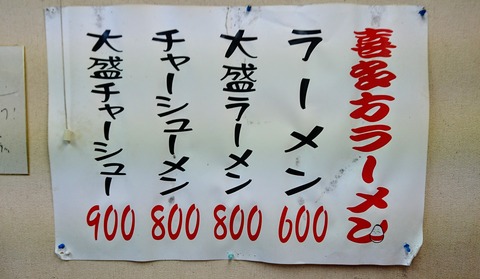 喜多方ラーメン
ラーメン 600
大盛ラーメン 800
チャーシューメン 800
大盛チャーシュー 900